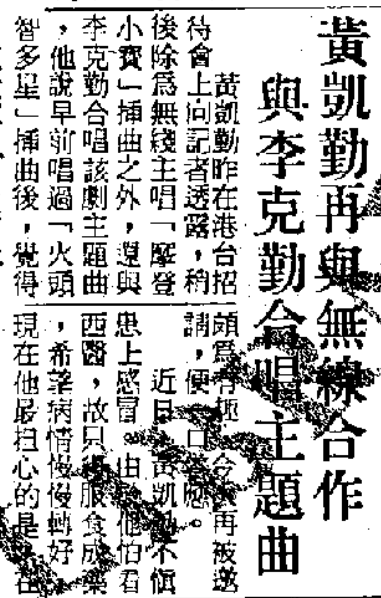 黃凱勤再與無線合作
與李克勤合唱主題曲
黃凱勤昨在港台招
待會上向記者透露，稍
後除爲無綫主唱「摩登
小寶」插曲之外，還與
李克勤合唱該劇主題曲
，他說早前唱過「火頭
智多星」插曲後，覺得
頗爲有趣，今次再被邀
請，便一口答應。
近日，黃凱勤不愼
患上感冒。由於他怕看
西醫，故只得服食成藥
，希望病情慢慢轉好，
現在他最担心的是 在